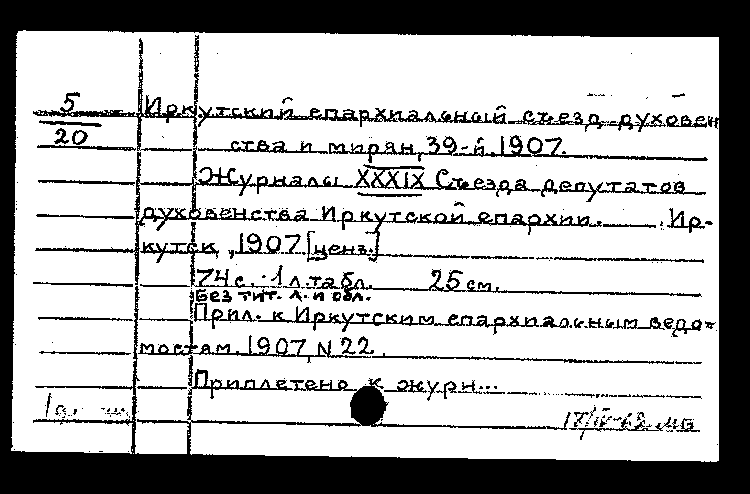 5
20
Иркутский епархиальный съезд духовен
ства и мирян, 39-й. 1907.
Журналы XXXIX Съезда депутатов
духовенства Иркутской епархии. Ир-
кутск, 1907 [ценз.]
74 с. 1 л. табл. 25 см.
Без тит. л. и обл.
Прил. к Иркутским епархиальным ведо-
мостям. 1907, N 22.
Приплетено к журн...